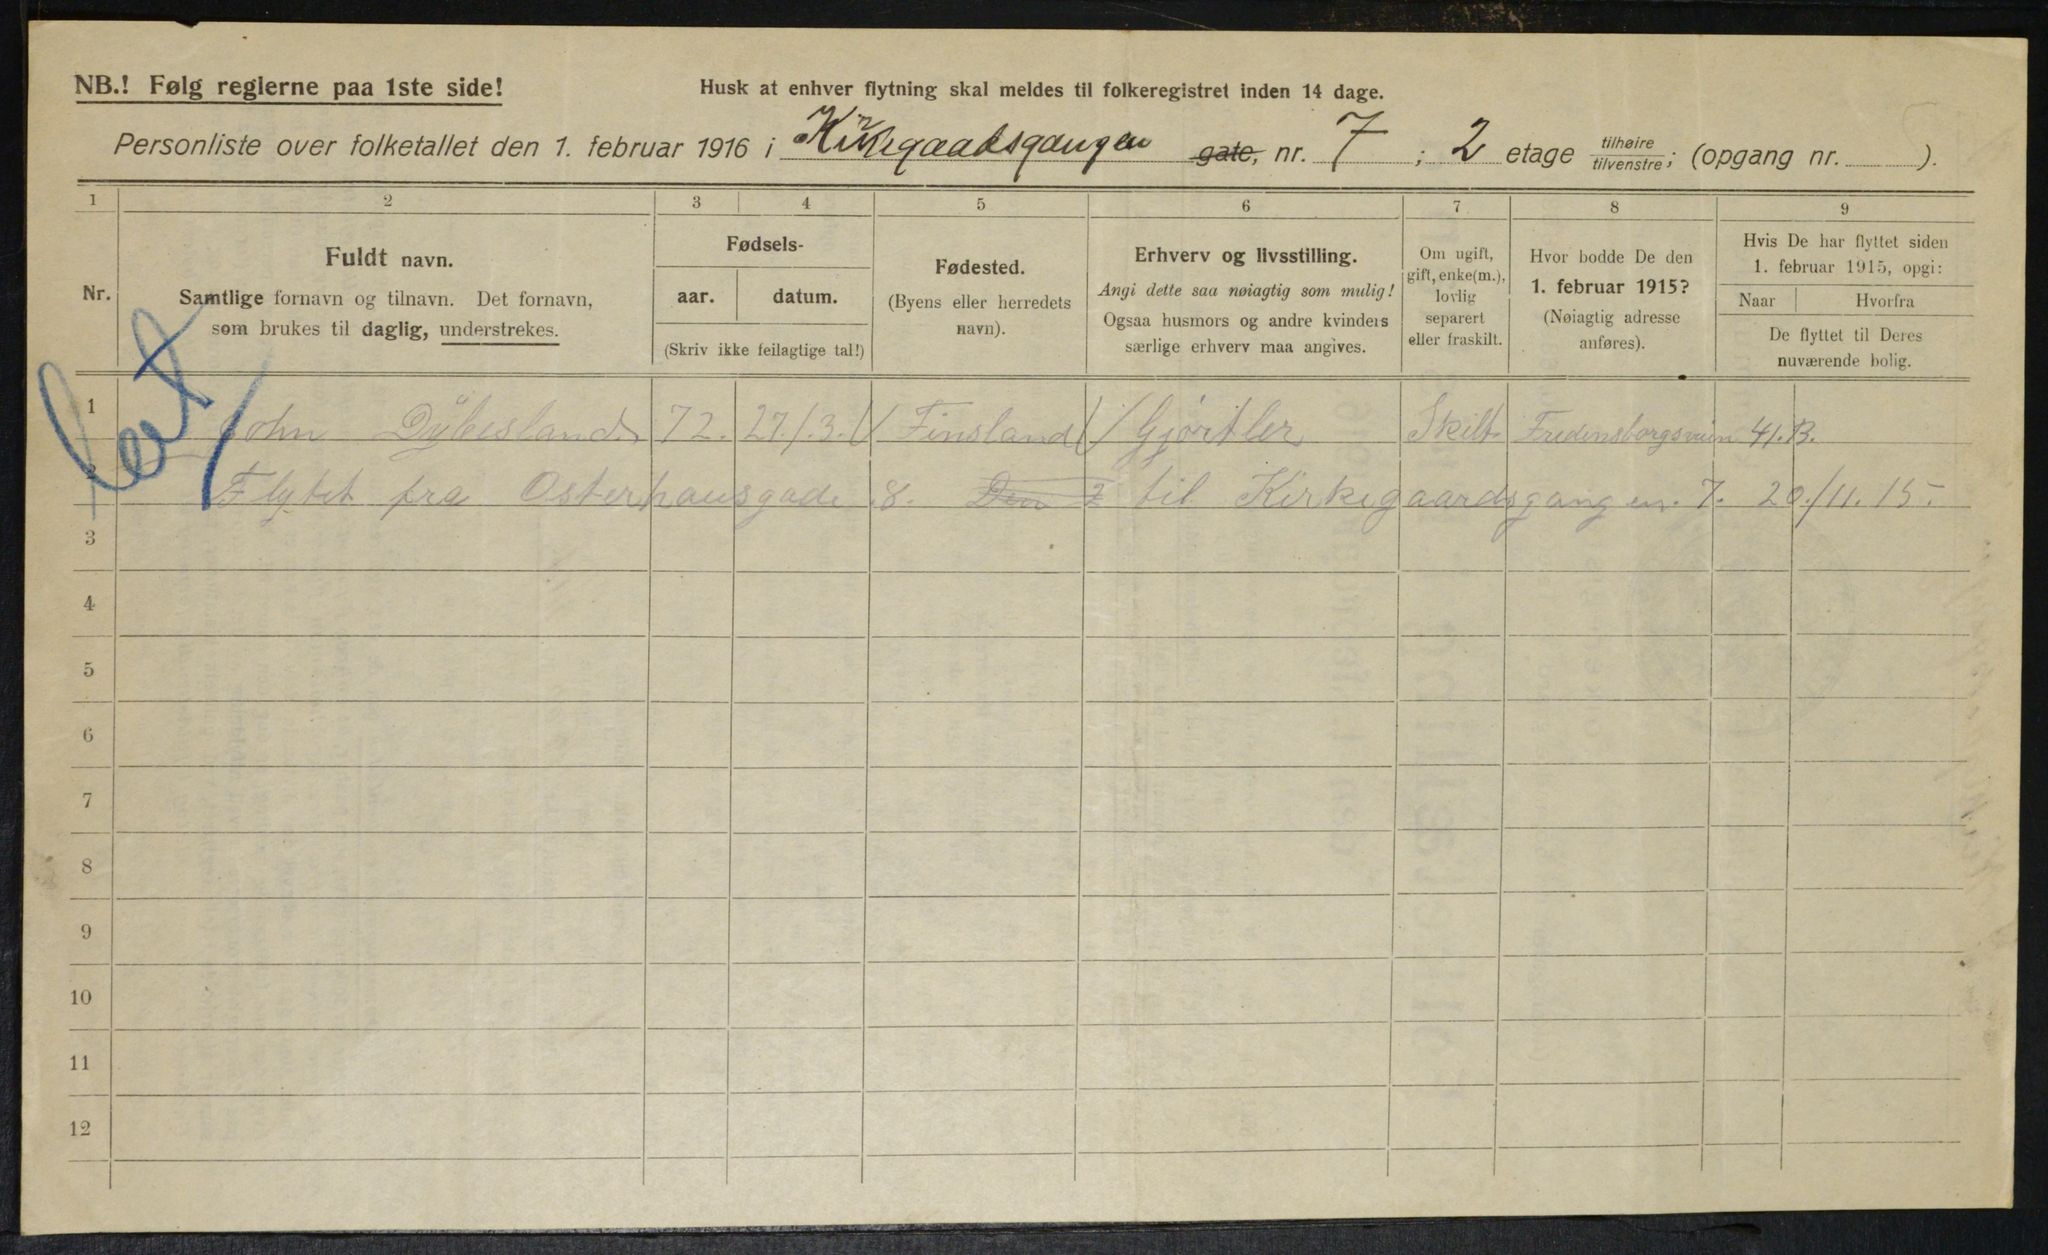 NB.! Følg reglerne paa 1ste side!
Husk at enhver flytning skal meldes til folkeregistret inden 14 dage.
Personliste over folketallet den 1. februar 1916 i Kirkegaardsgangen gate, nr. 7 ; 2 etage tilhøire / tilvenstre; (opgang nr. ).
1 2 3 4 5 6 7 8 9
Nr.
Fuldt navn.
Samtlige fornavn og tilnavn. Det fornavn,
som brukes til daglig, understrekes.
Fødsels-
aar. datum.
(Skriv ikke feilagtige tal!)
Fødested.
(Byens eller herredets
navn).
Erhverv og livsstilling.
Angi dette saa nøiagtig som mulig!
Ogsaa husmors og andre kvinders
særlige erhverv maa angives.
Om ugift,
gift, enke(m.),
lovlig
separert
eller fraskilt.
Hvor bodde De den
1. februar 1915?
(Nøiagtig adresse
anføres).
Hvis De har flyttet siden
1. februar 1915, opgi:
Naar Hvorfra
De flyttet til Deres
nuværende bolig.
1 John Dybesland 72. 27/3. Finsland Gjørtler Skilt. Fredensborgsveien 41. B.
2 Flytet fra Osterhausgade 8. Den 2 til Kirkegaardsgangen. 7. 20/11. 15.
3
4
5
6
7
8
9
10
11
12